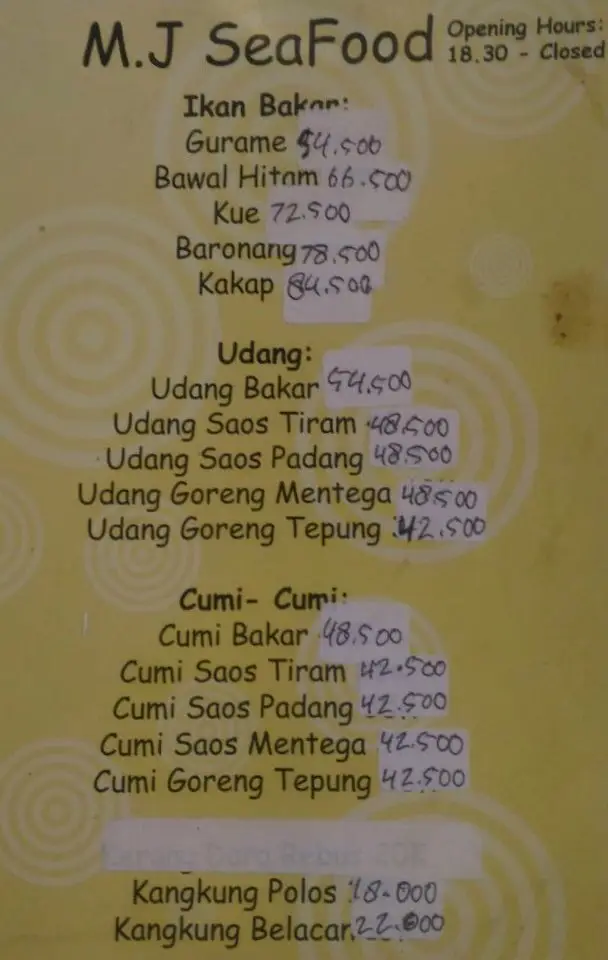 M.J SeaFood
Opening Hours:
18.30 - Closed
Ikan Bakar:
Gurame 54.500
Bawal Hitam 66.500
Kue 72.500
Baronang 78.500
Kakap 84.500
Udang:
Udang Bakar 54.500
Udang Saos Tiram 48.500
Udang Saos Padang 48.500
Udang Goreng Mentega 48.500
Udang Goreng Tepung 42.500
Cumi- Cumi:
Cumi Bakar 48.500
Cumi Saos Tiram 42.500
Cumi Saos Padang 42.500
Cumi Saos Mentega 42.500
Cumi Goreng Tepung 42.500
Kangkung Polos 18.000
Kangkung Belacan 22.000